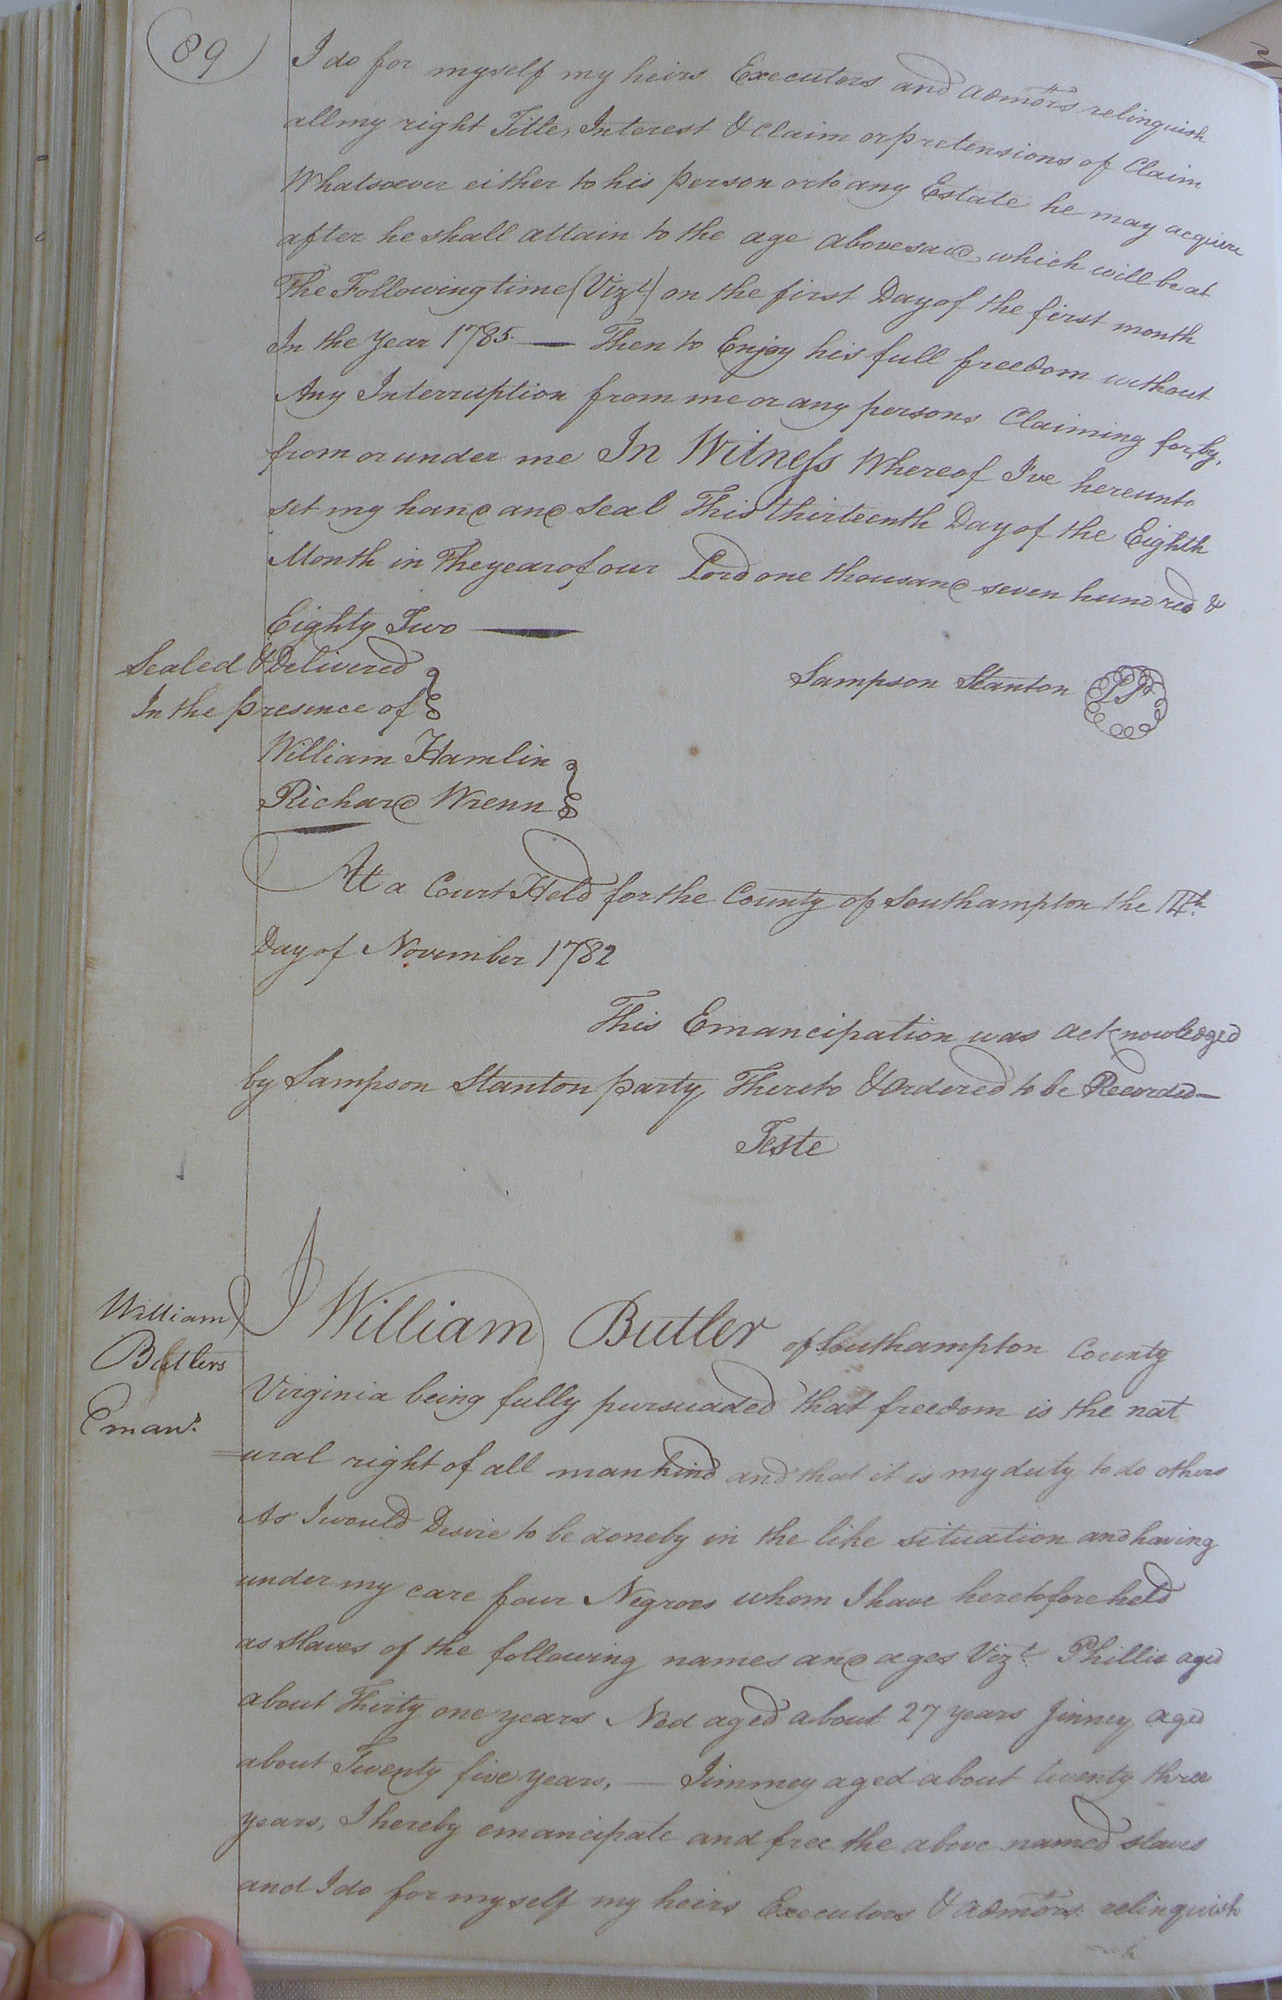 89
I do for myself my heirs Executors and admors relinquish
all my right Title, Interest & Claim or pretensions of Claim
Whatsoever either to his person or to any Estate he may acquire
after he shall attain to the age abovesaid, which will be at
The Following time (Vizt) on the first Day of the first month
In the Year 1785. — Then to Enjoy his full freedom without
Any Interruption from me or any persons Claiming for, by,
from or under me In Witness Whereof I've hereunto
set my hand and Seal This thirteenth Day of the Eighth
Month in The year of our Lord one thousand seven hundred &
Eighty Two —
Sealed & Delivered
In the presence of
Sampson Stanton
William Hamlin
Richard Wrenn
At a Court Held for the County of Southampton the 14th
Day of November 1782
This Emancipation was acknowledged
by Sampson Stanton party Thereto & Ordered to be Recorded—
Teste
William
Butlers
Eman.
I William Butler of Southampton County
Virginia being fully pursuaded that freedom is the nat
=ural right of all mankind and that it is my duty to do others
As I would Desire to be done by in the like situation and having
under my care four Negroes whom I have heretofore held
as slaves of the following names and ages Vizt. Phillis aged
about Thirty one years Ned aged about 27 years Jinney aged
about Twenty five years, — Jimmey aged about twenty three
years, I hereby emancipate and free the above named slaves
and I do for myself my heirs Executors & admors. relinquish